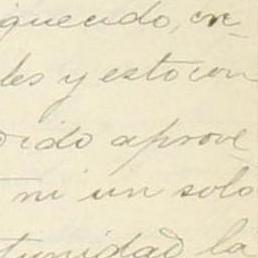 querido, en
les y esto con
dido aprove
ni un solo
tunidad la